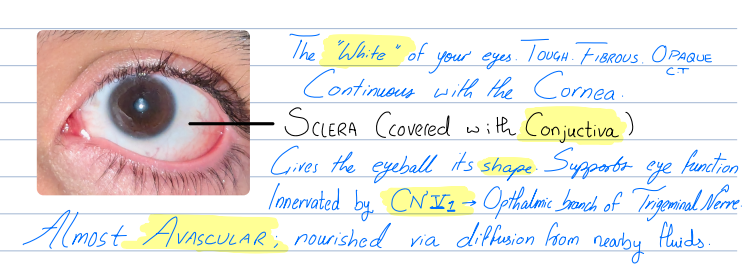 The "White" of your eyes. TOUGH. FIBROUS. OPAQUE
CT
Continuous with the Cornea.
SCLERA (covered with Conjuctiva)
Gives the eyeball its shape. Supports eye function
Innervated by CN V1 → Opthalmic branch of Trigeminal Nerve.
Almost AVASCULAR; nourished via diffusion from nearby fluids.